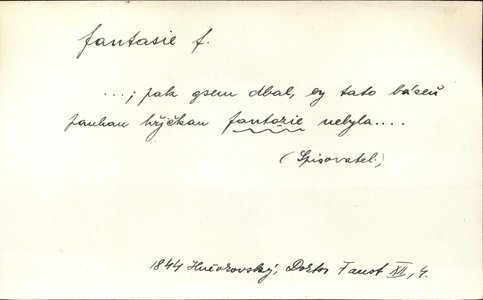 fantasie f.
...; pak gsem dbal, by tato báseň
pauhau hřjčkau fantazie nebyla....
(Spisovatel.)
1844 Hněvkovský, Doktor Faust XII, 4.